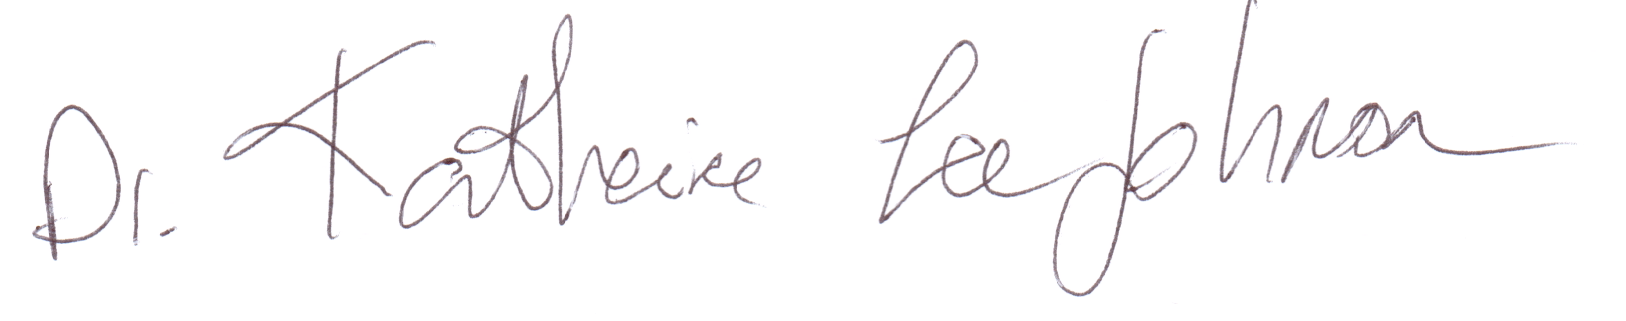 Dr. Katheine Lee Johnson